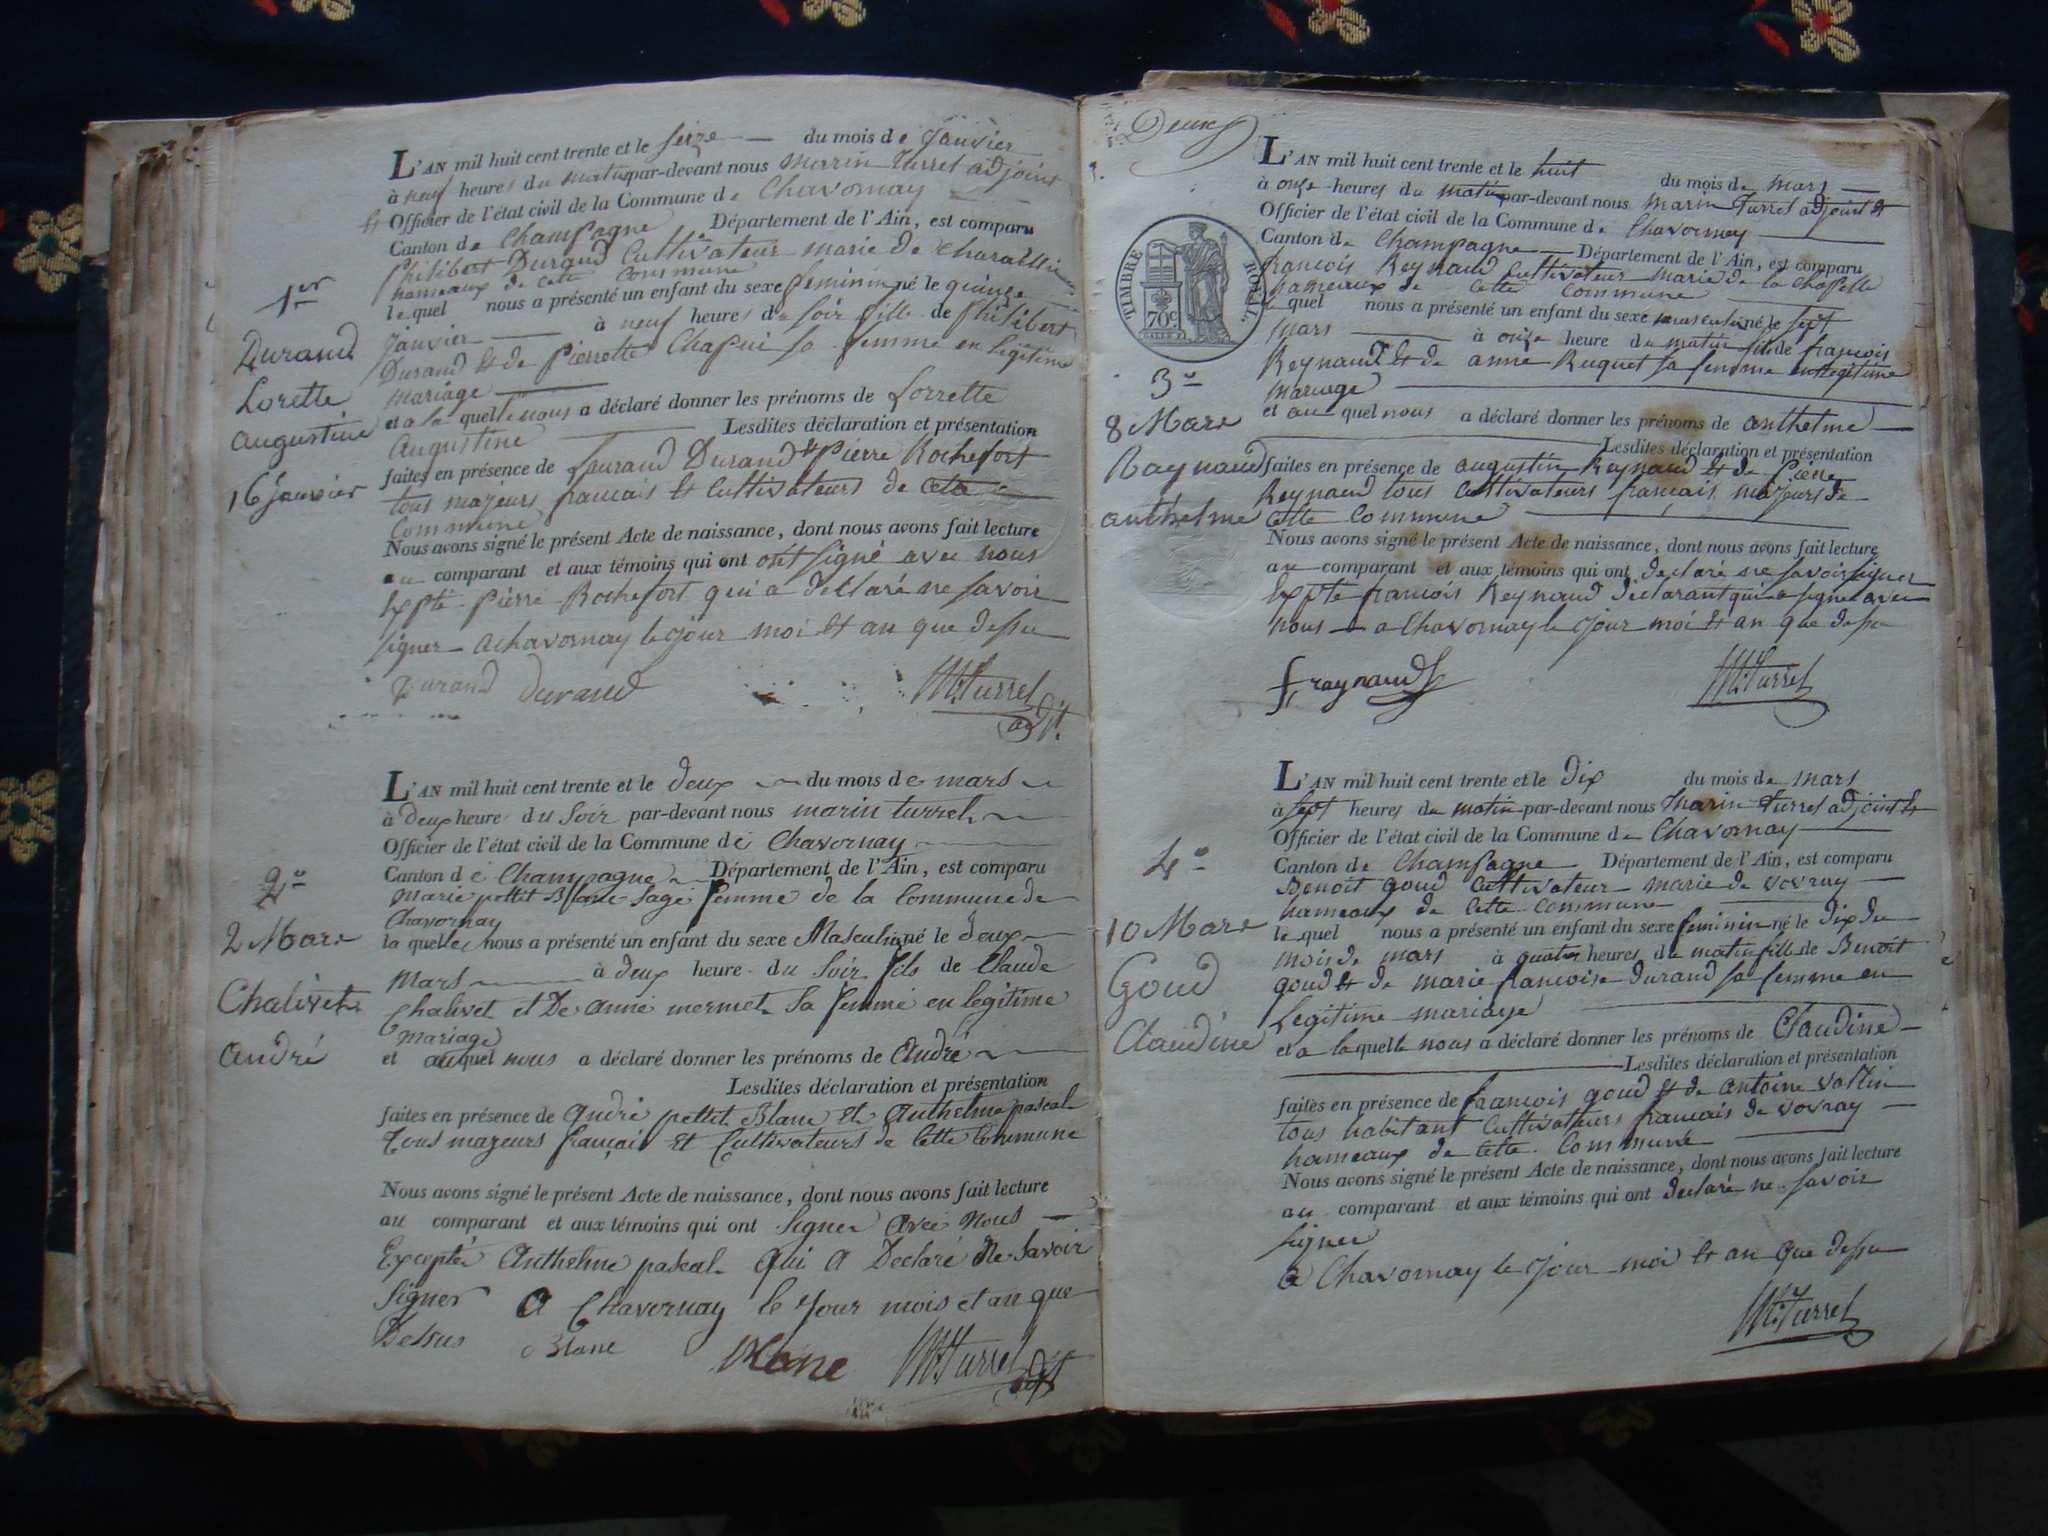 L'AN mil huit cent trente et le seize du mois de Janvier
à neuf heures du matin par-devant nous Marin Turrel adjoint
et Officier de l'état civil de la Commune de Chavornay
Canton de Champagne Département de l'Ain, est comparu
philibert Durand Cultivateur marie de
hameaux de cette commune
le quel nous a présenté un enfant du sexe feminin né le quinze
Janvier à neuf heures du soir fille de philibert
Durand et de Pierrette Chapui sa femme en legitime
mariage
et a la quelle nous a déclaré donner les prénoms de Lorrette
Augustine Lesdites déclaration et présentation
faites en présence de Durand et Pierre Rochefort
tous majeurs francais et Cultivateurs de cette
Commune
Nous avons signé le présent Acte de naissance, dont nous avons fait lecture
au comparant et aux témoins qui ont ont signé avec nous
Expte Pierre Rochefort qui a déclaré ne savoir
signer a chavornay le jour moi et an que dessu
Durand Durand M. Turrel
adjt.
1er
Durand
Lorette
augustine
16 janvier
L'AN mil huit cent trente et le deux du mois de mars
à deux heure du soir par-devant nous marin turrel
Officier de l'état civil de la Commune de Chavornay
Canton de Champagne Département de l'Ain, est comparu
Marie pettit Blanc sage femme de la Commune de
Chavornay
la quelle nous a présenté un enfant du sexe Masculin né le deux
Mars à deux heure du soir fils de Claude
Chalivet et De anne mermet sa femme en legitime
Mariage
et auquel nous a déclaré donner les prénoms de André
Lesdites déclaration et présentation
faites en présence de André pettit Blanc et Anthelme pascal
Tous majeurs français et Cultivateurs de Cette Commune
Nous avons signé le présent Acte de naissance, dont nous avons fait lecture
au comparant et aux témoins qui ont signer avec nous
Excepté Anthelme pascal qui a Déclaré Ne Savoir
Signer a Chavornay le Jour mois et an que
Dessus Blanc Blanc M. Turrel
adjt
2e
2 Mars
Chalivet
André
Deux
L'AN mil huit cent trente et le huit du mois de mars
à onze heures du matin par-devant nous Marin Turrel adjoint et
Officier de l'état civil de la Commune de Chavornay
Canton de Champagne Département de l'Ain, est comparu
francois Reynaud Cultivateur marie de la chapelle
hameaux de cette commune
le quel nous a présenté un enfant du sexe masculin né le sept
mars à onze heure du matin fils de françois
Reynaud et de anne Ruquet sa femme en legitime
mariage
et au quel nous a déclaré donner les prénoms de anthelme
Lesdites déclaration et présentation
faites en présence de augustin Reynaud et de Pierre
Reynaud tous cultivateurs français majeurs de
cette commune
Nous avons signé le présent Acte de naissance, dont nous avons fait lecture
au comparant et aux témoins qui ont declaré ne savoir signer
Expte francois Reynaud declarant qui a signé avec
nous a Chavornay le jour moi et an que dessu
f raynaud M. Turrel
TIMBRE ROYAL
70c
3e
8 Mars
Raynaud
anthelme
L'AN mil huit cent trente et le dix du mois de mars
à sept heures du matin par-devant nous Marin Turrel adjoint et
Officier de l'état civil de la Commune de Chavornay
Canton de Champagne Département de l'Ain, est comparu
Benoit goud cultivateur marie de vovray
hameaux de cette commune
le quel nous a présenté un enfant du sexe feminin né le dix du
mois de mars à quatre heures du matin fille de Benoit
goud et de marie francoise durand sa femme en
Legitime mariage
et a laquelle nous a déclaré donner les prénoms de Claudine
Lesdites déclaration et présentation
faites en présence de francois goud et de antoine
tous habitant cultivateurs francais de vovray
hameaux de cette commune
Nous avons signé le présent Acte de naissance, dont nous avons fait lecture
au comparant et aux témoins qui ont declaré ne savoir
signer
a Chavornay le jour moi et an que dessu
M. Turrel
4e
10 Mars
Goud
Claudine